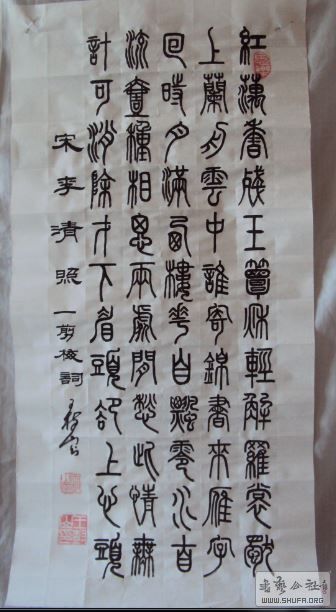 紅藕香殘玉簟秋輕解羅裳獨
上蘭舟雲中誰寄錦書來雁字
回時月滿西樓花自飄零水自
流壹種相思兩處閒愁此情無
計可消除才下眉頭卻上心頭
宋李清照一剪梅詞
書藝公社
WWW.SHUFA.ORG